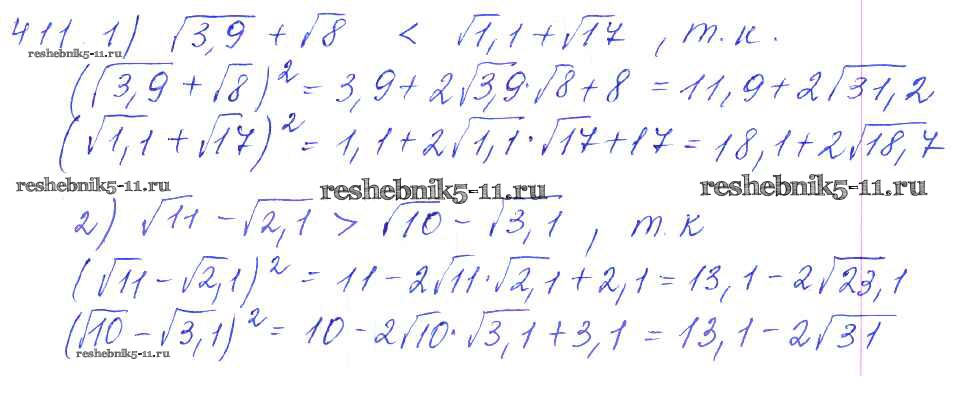 411. 1) √3,9 + √8 < √1,1 + √17, т.к.
reshebnik5-11.ru
(√3,9 + √8)² = 3,9 + 2√3,9·√8 + 8 = 11,9 + 2√31,2
(√1,1 + √17)² = 1,1 + 2√1,1·√17 + 17 = 18,1 + 2√18,7
reshebnik5-11.ru reshebnik5-11.ru reshebnik5-11.ru
2) √11 - √2,1 > √10 - √3,1, т.к
(√11 - √2,1)² = 11 - 2√11·√2,1 + 2,1 = 13,1 - 2√23,1
(√10 - √3,1)² = 10 - 2√10·√3,1 + 3,1 = 13,1 - 2√31
reshebnik5-11.ru